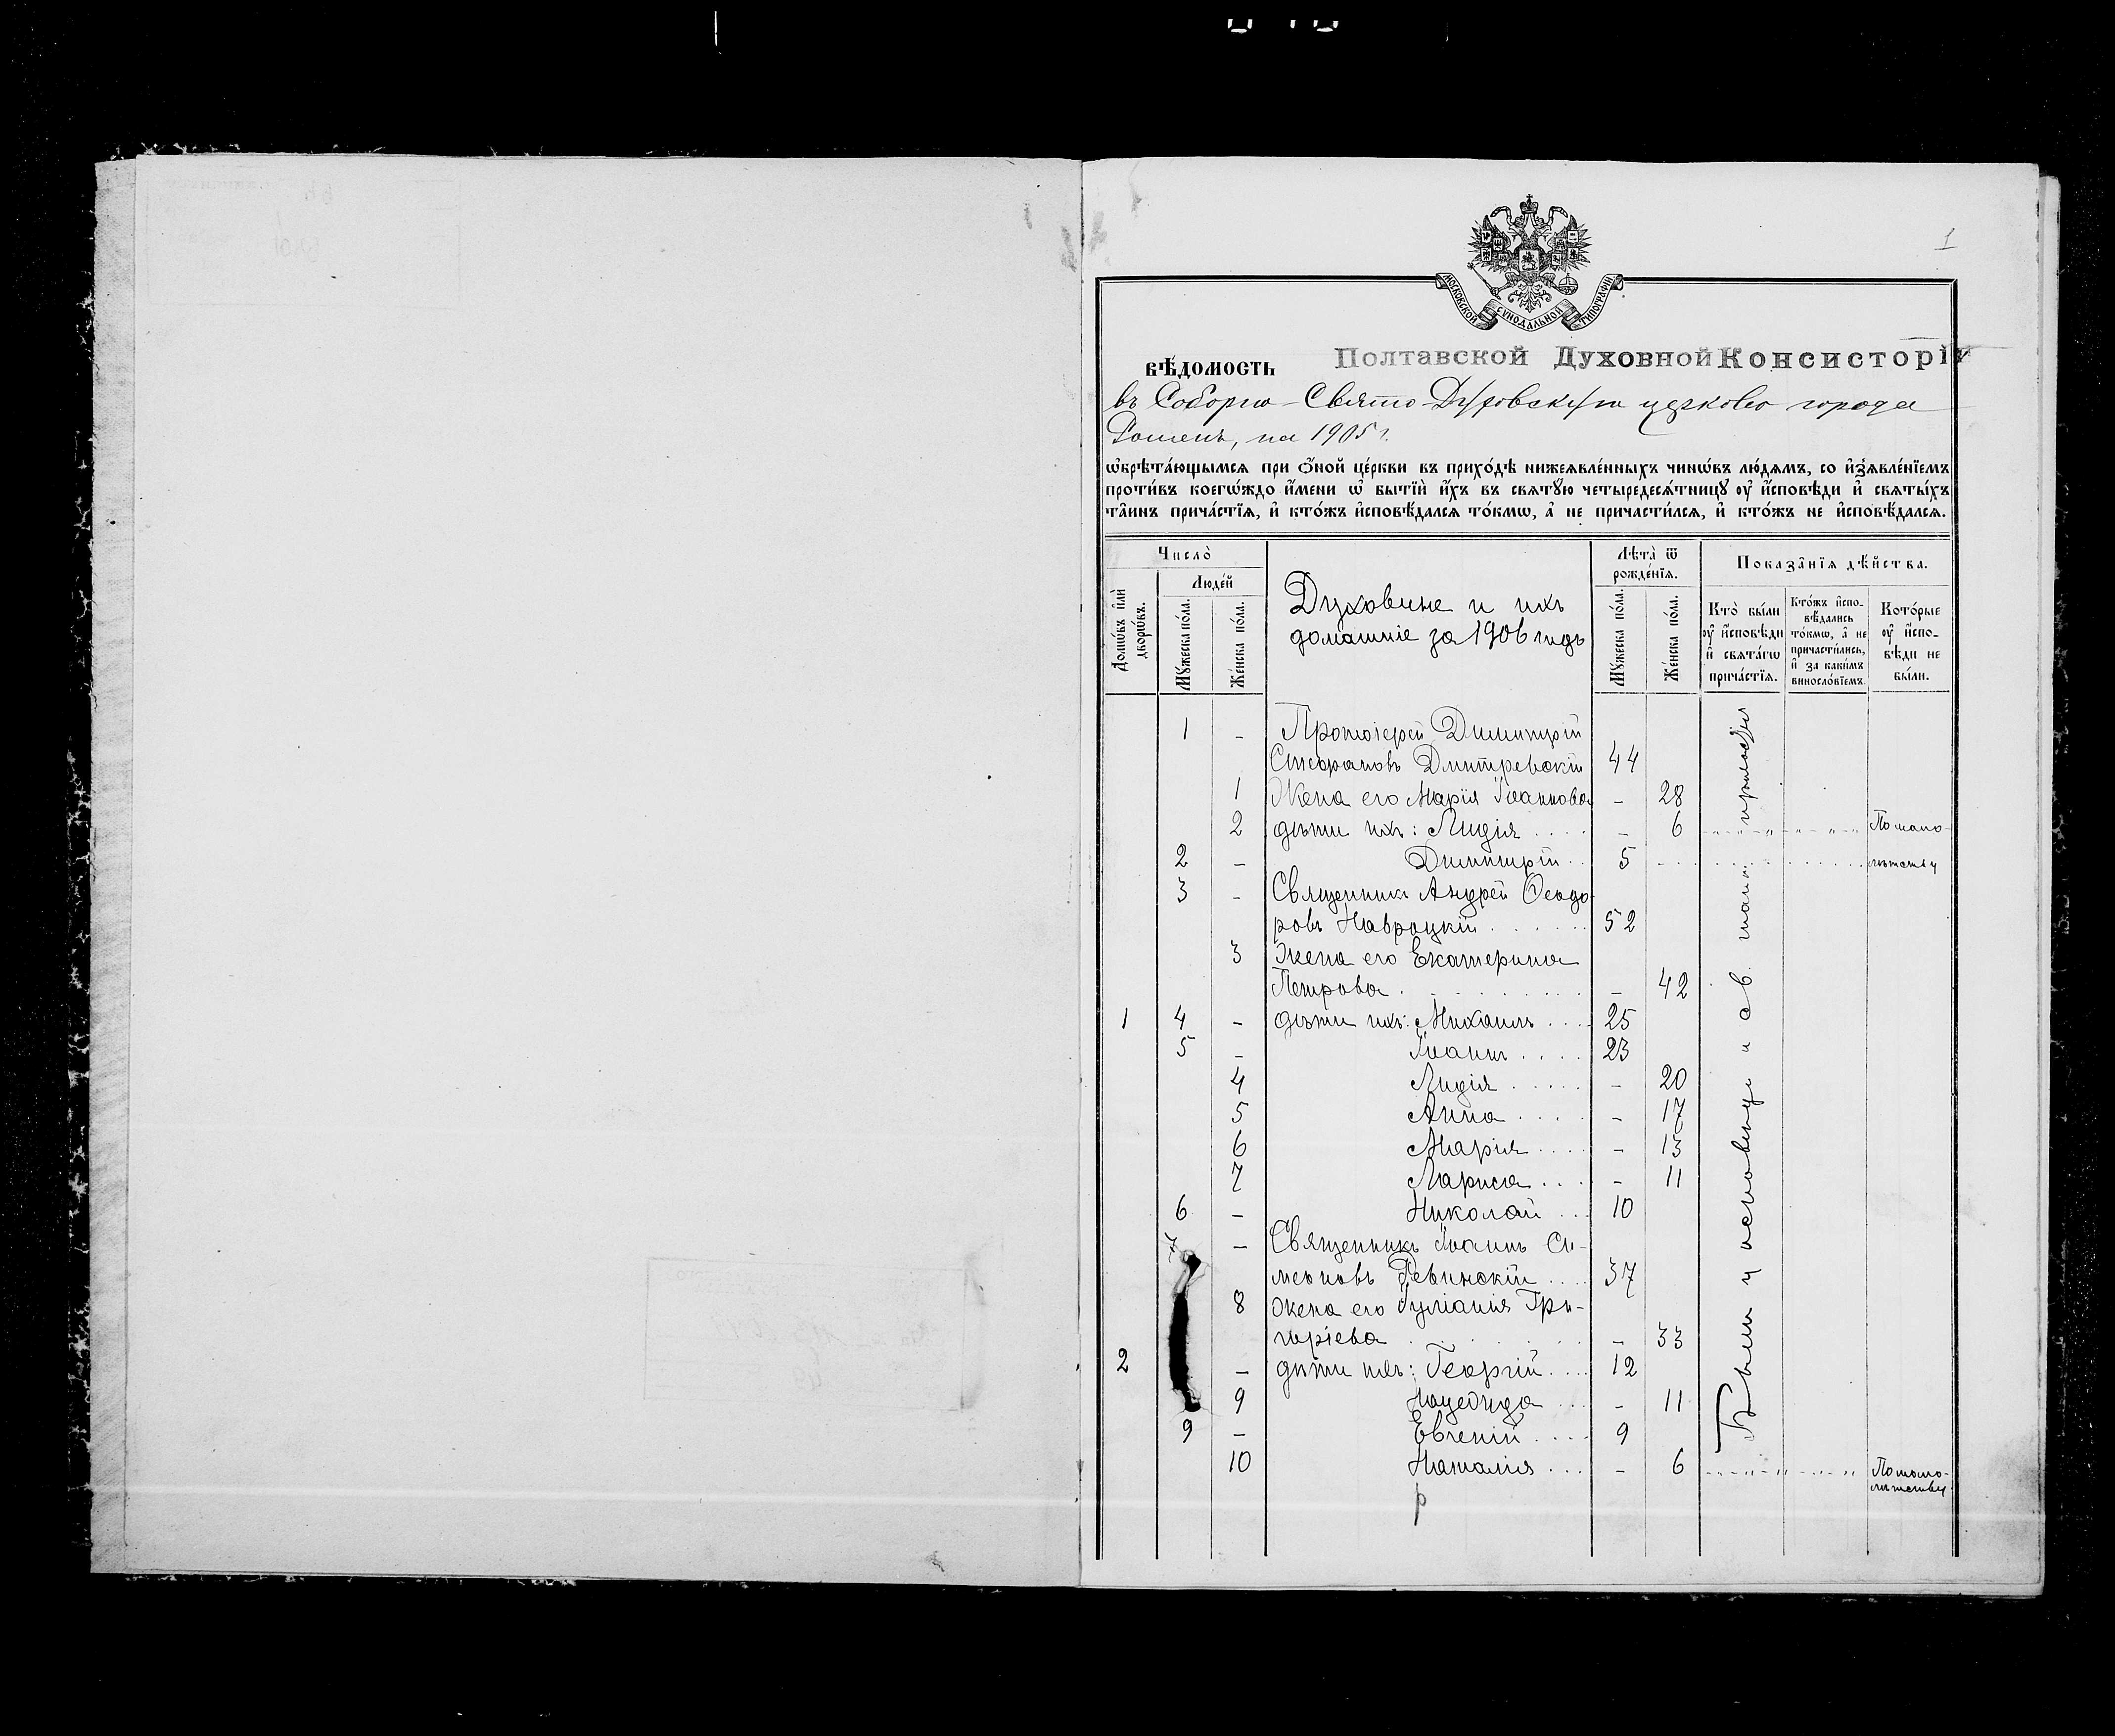 1
МОСКОВСКОЙ СѴНОДАЛЬНОЙ ТИПОГРАФІИ
вѣ́домость Полтавской Духовной Консисторіи
въ Соборно-Свято-Духовскую церковь города
Ромень, на 1905 г.
ѡ҆брѣта́ющымся при ѻ҆́ной це́ркви въ прихо́дѣ нижеявле́нныхъ чинѡ́въ лю́дямъ, со и҆з̾явле́нїемъ
проти́въ коегѡ́ждо и҆́мени ѡ҆ бытїѝ и҆́хъ въ святꙋ́ю четыредеся́тницꙋ оу҆ и҆́сповѣди и҆ святы́хъ
та̑инъ прича́стїя, и҆ кто́жъ и҆сповѣ́дался то́кмѡ, а҆ не причасти́лся, и҆ кто́жъ не и҆сповѣ́дался.
Число̀
Лѣта̀ ѿ рожде́нїя.
Показа̑нїя дѣ́йства.
Домѡ́въ и҆лѝ дворѡ́въ.
Люде́й
Мꙋ́жеска по́ла.
Же́нска по́ла.
Духовные и ихъ
домашніе за 1906 годъ
Мꙋ́жеска по́ла.
Же́нска по́ла.
Кто̀ бы́ли оу҆ и҆́сповѣди и҆ свята́гѡ прича́стїя.
Кто́жъ и҆спо-вѣ́дались то́кмѡ, а҆ не причасти́лись, и҆ за каки́мъ виносло́вїемъ.
Кото́рые оу҆ и҆́спо-вѣди не бы́ли.
1 - Протоіерей Димитрій
Стефановъ Дмитревскій 44
1 Жена его Марія Іоаннова - 28
2 дѣти ихъ: Лидія .... - 6 По мало-
2 - Димитрій .. 5 лѣтству
3 - Священникъ Андрей Ѳеодо-
ровъ Навроцкій ...... 52
3 Жена его Екатерина
Петрова ........ - 42
1 4 - дѣти ихъ: Михаилъ .... 25
5 - Іоаннъ .... 23
4 Лидія ..... - 20
5 Анна .... - 17
6 Марія .... - 15
7 Лариса ... - 11
6 - Николай ... 10
7 - Священникъ Іоаннъ Си-
меоновъ Левинскій .... 37
8 Жена его Іуліанія Гри-
горіева ...... - 33
2 - дѣти ихъ: Георгій .... 12
9 ... - 11
9 - Евгеній .... 9
10 Наталія ... - 6 По мало-
лѣтству
Были у исповѣди и св. таинъ приобщ